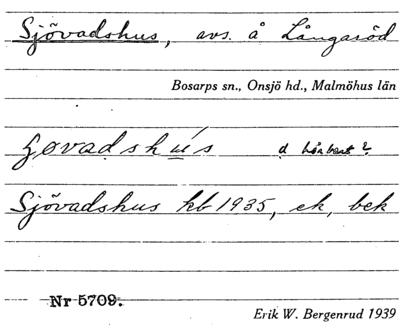 Sjövadshus, avs. å Långaröd
Bosarps sn., Onsjö hd., Malmöhus län
d hörbart?
Sjövadshus kb 1935, ek, bek
Nr 5709.
Erik W. Bergenrud 1939